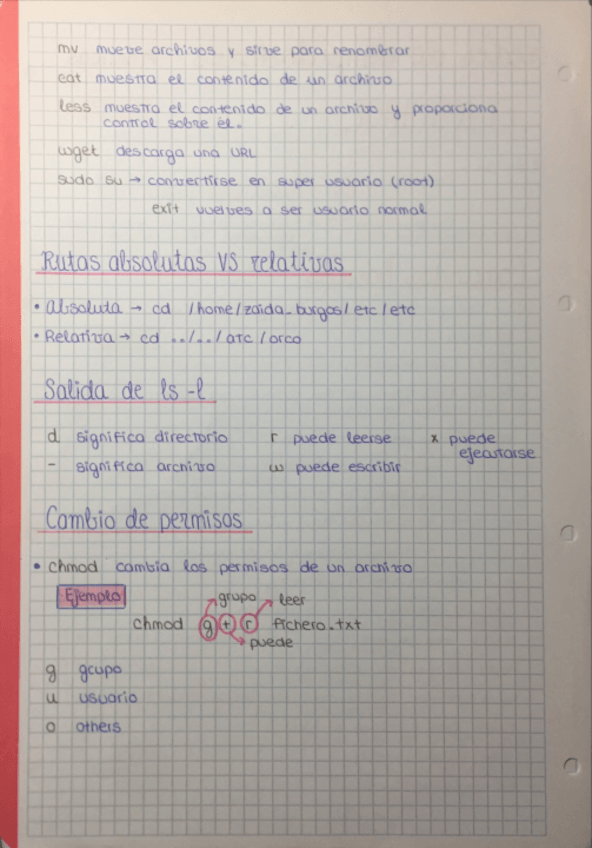 mv mueve archivos y sirve para renombrar
cat muestra el contenido de un archivo
less muestra el contenido de un archivo y proporciona
control sobre él.
wget descarga una URL
sudo su → convertirse en super usuario (root)
exit vuelves a ser usuario normal
Rutas absolutas VS relativas
• Absoluta → cd /home/zaida_burgos/etc/etc
• Relativa → cd ../../arc/orco
Salida de ls -l
d significa directorio r puede leerse x puede
ejecutarse
- significa archivo w puede escribir
Cambio de permisos
• chmod cambia los permisos de un archivo
Ejemplo
grupo leer
chmod g+r fichero.txt
puede
g grupo
u usuario
o others